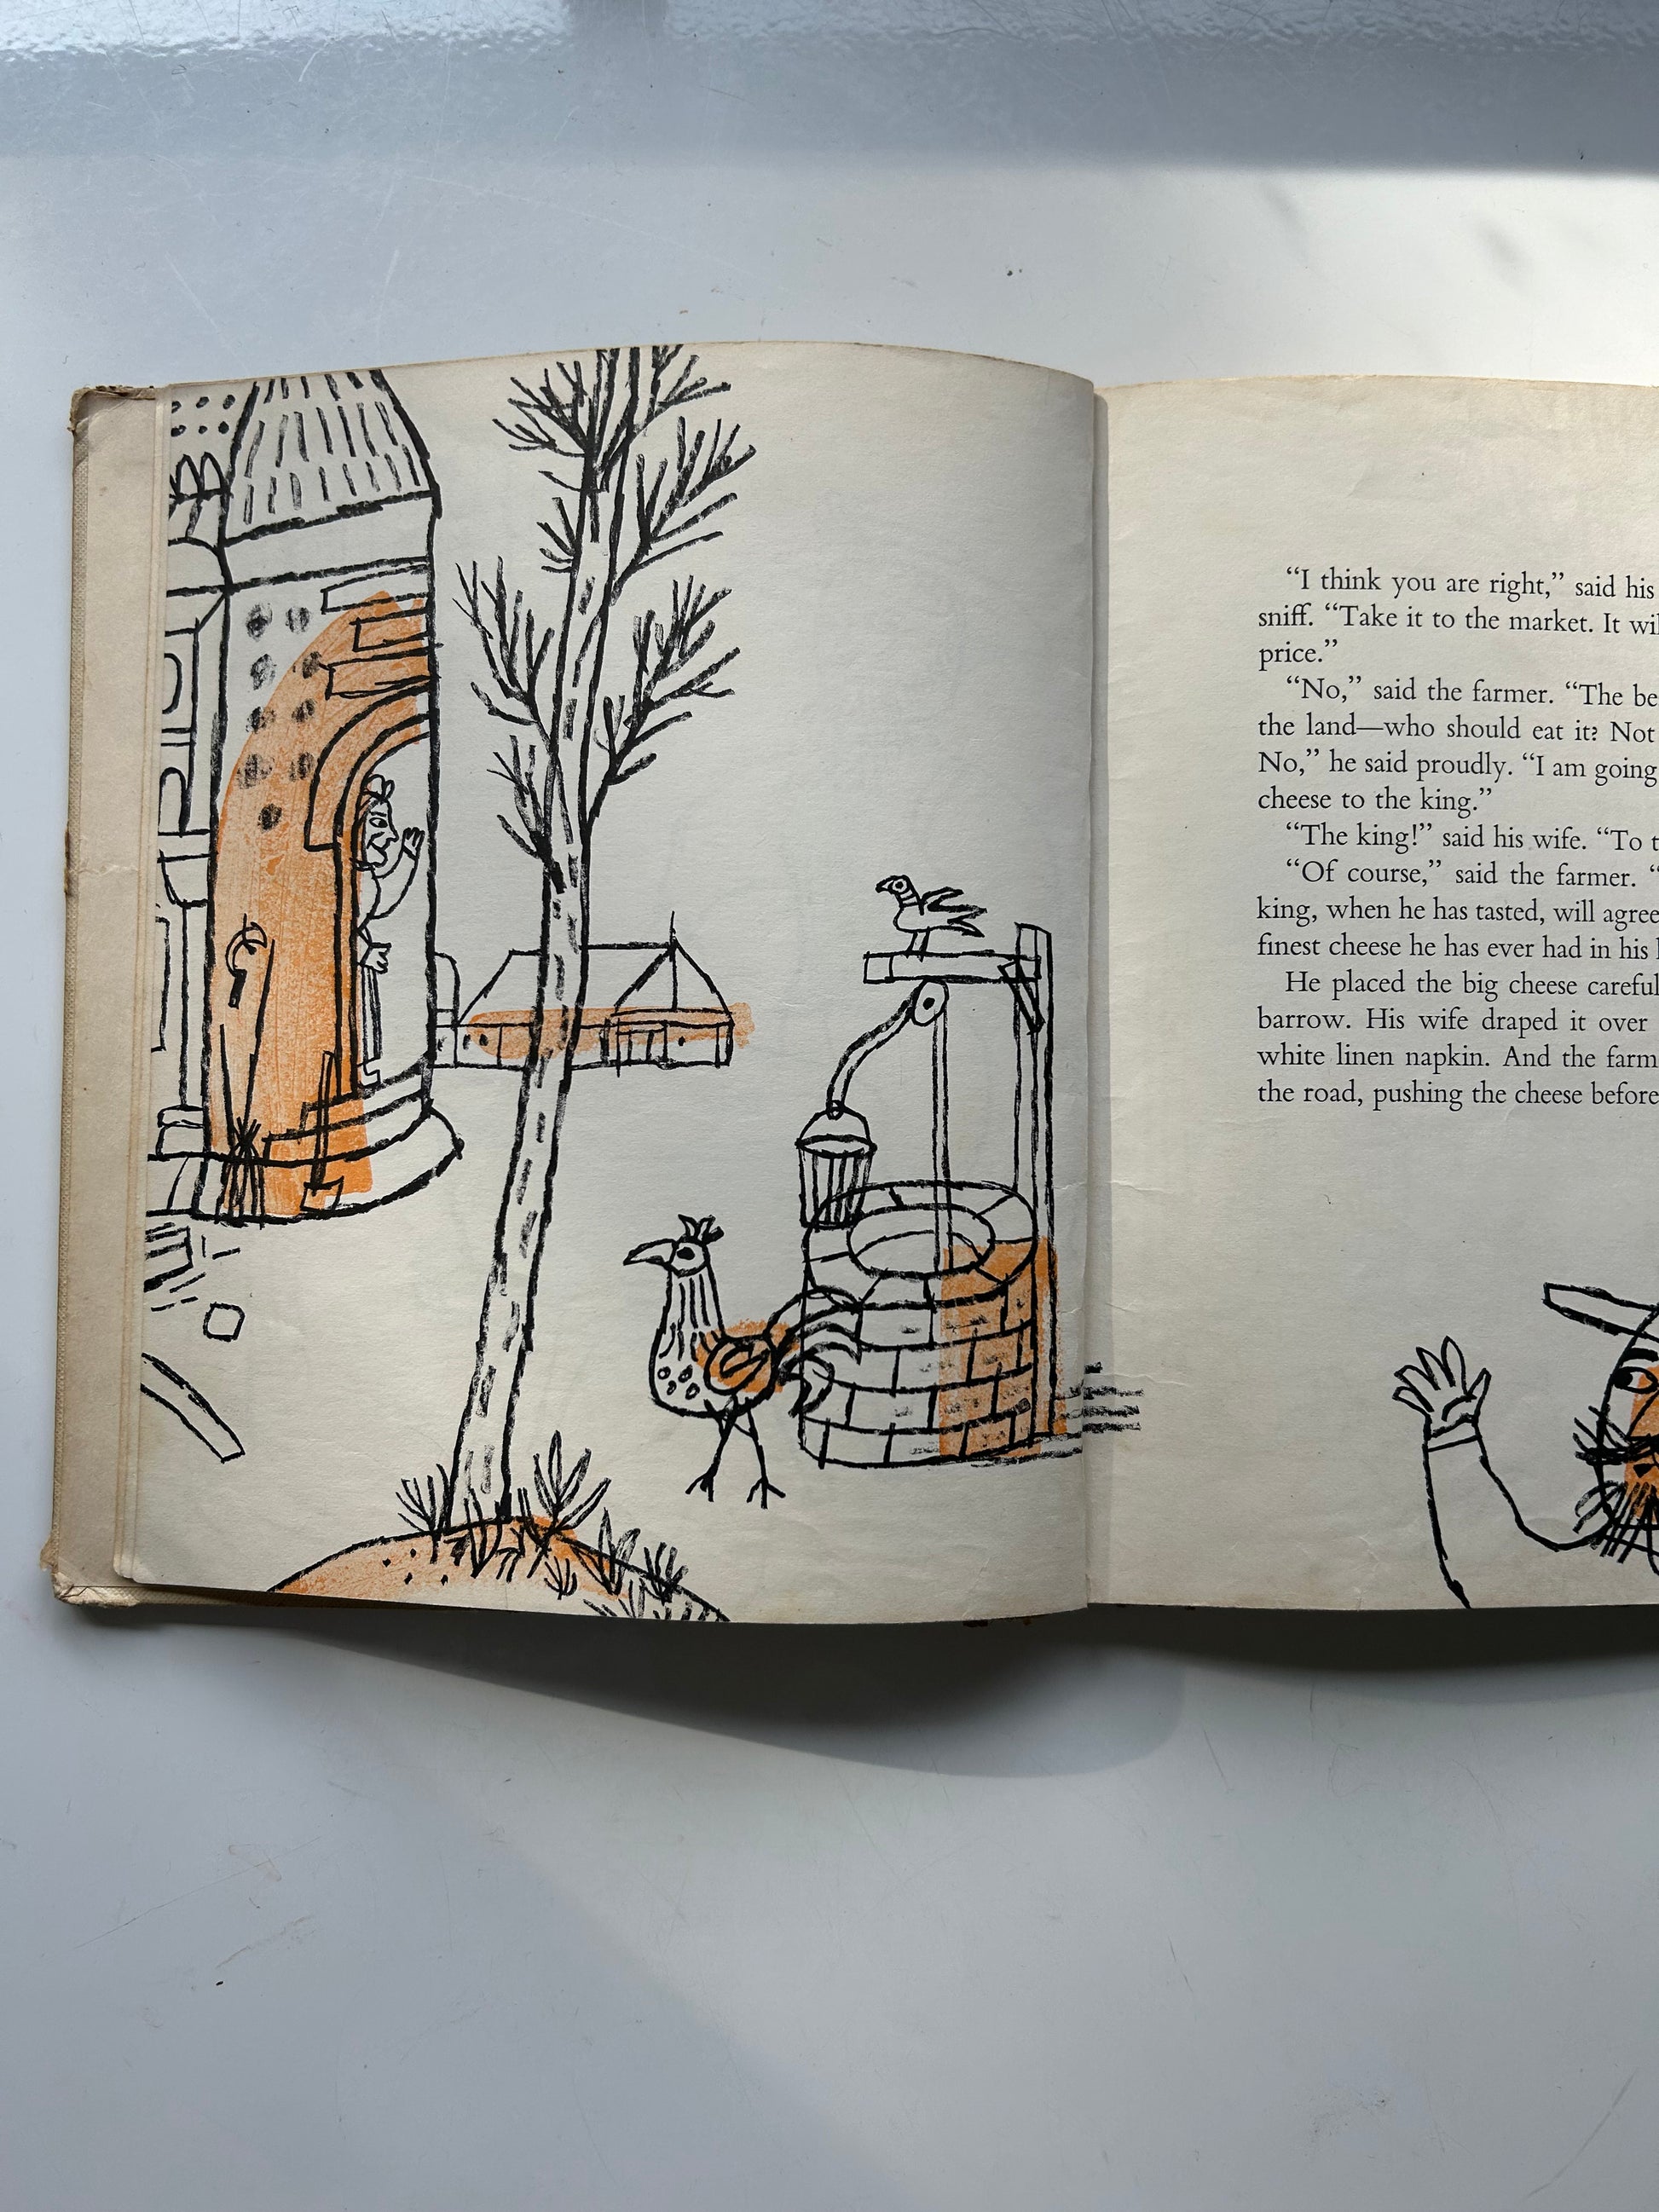 “I think you are right,” said his
sniff. “Take it to the market. It
price.”
“No,” said the farmer. “The
the land—who should eat it? Not
No,” he said proudly. “I am going
cheese to the king.”
“The king!” said his wife. “To
“Of course,” said the farmer. “
king, when he has tasted, will agree
finest cheese he has ever had in his
He placed the big cheese
barrow. His wife draped it over
white linen napkin. And the
the road, pushing the cheese before